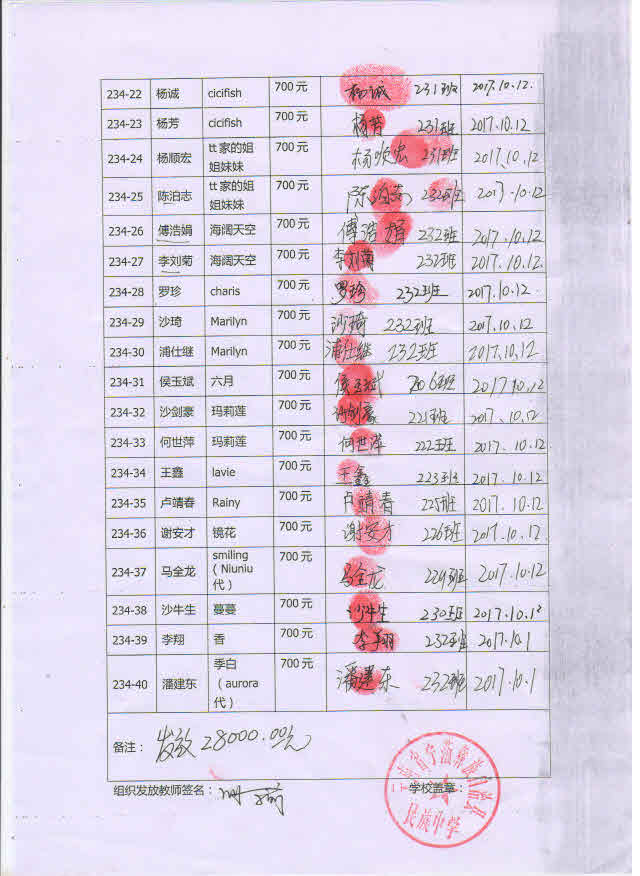 234-22 杨诚 cicifish 700元 杨诚 231班 2017.10.12.
234-23 杨芳 cicifish 700元 杨芳 231班 2017.10.12
234-24 杨顺宏 tt家的姐 700元 杨顺宏 231班 2017.10.12
姐妹妹
234-25 陈泊志 tt家的姐 700元 陈泊志 232班 2017.10.12
姐妹妹
234-26 傅浩娟 海阔天空 700元 傅浩娟 232班 2017.10.12
234-27 李刘菊 海阔天空 700元 李刘菊 232班 2017.10.12
234-28 罗珍 charis 700元 罗珍 232班 2017.10.12
234-29 沙琦 Marilyn 700元 沙琦 232班 2017.10.12
234-30 浦仕继 Marilyn 700元 浦仕继 232班 2017.10.12
234-31 侯玉斌 六月 700元 侯玉斌 206班 2017.10.12
234-32 沙剑豪 玛莉莲 700元 沙剑豪 221班 2017.10.12
234-33 何世萍 玛莉莲 700元 何世萍 222班 2017.10.12
234-34 王鑫 lavie 700元 王鑫 223班 2017.10.12
234-35 卢靖春 Rainy 700元 卢靖春 225班 2017.10.12
234-36 谢安才 镜花 700元 谢安才 226班 2017.10.12
234-37 马全龙 smiling 700元 马全龙 229班 2017.10.12
（Niuniu
代）
234-38 沙牛生 蔓蔓 700元 沙牛生 230班 2017.10.12
234-39 李翔 香 700元 李翔 232班 2017.10.1
234-40 潘建东 季白 700元 潘建东 232班 2017.10.1
（aurora
代）
备注： 发放28000.00元
组织发放教师签名： 学校盖章：
云南省宁蒗彝族自治县
民族中学